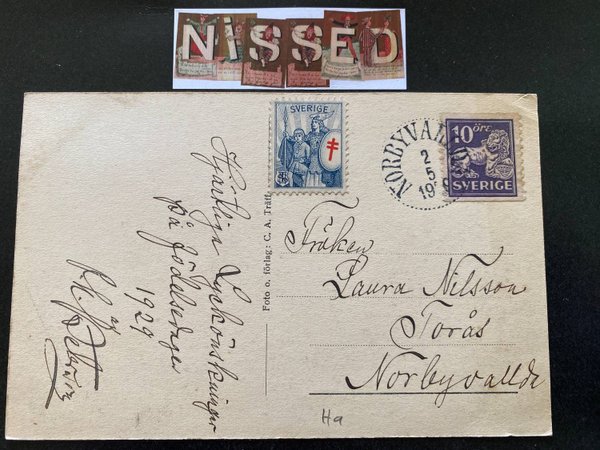 NiSSED
SVERIGE
NORBYVALLDA
2
5
19
10 ÖRE
SVERIGE
Hjärtliga Lyckönskningar
på födelsedagen
1929
av
Foto o. förlag: C. A. Träff
Fröken
Laura Nilsson
Torås
Norbyvallda
Ha